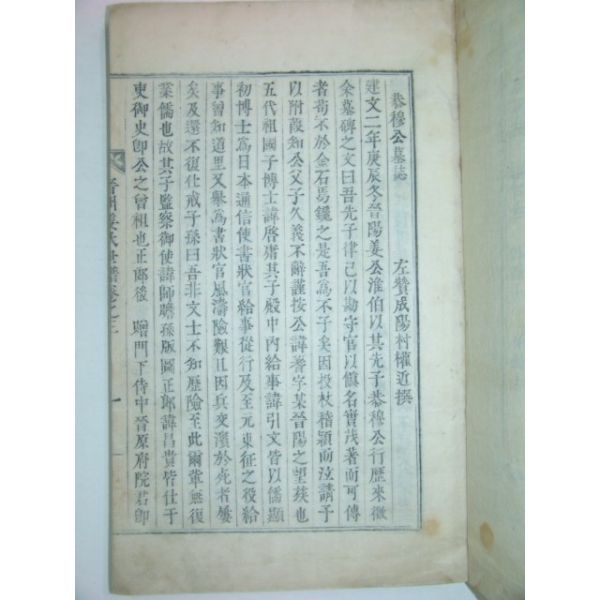 恭穆公墓誌
左贊成陽村權近撰
建文二年庚辰冬晉陽姜公淮伯以其先子恭穆公行歷來徵
余墓碑之文曰吾先子律己以勤守官以愼名實茂著而可傳
者苟不於金石焉鑱之是吾爲不子矣因投杖稽顙而泣請予
以附葭知公父子久義不辭謹按公諱蓍字某晉陽之望族也
五代祖國子博士諱啓庸其子殿中內給事諱引文皆以儒顯
初博士爲日本通信使書狀官給事從行及至元東征之役給
事曾知道里又舉爲書狀官風濤險艱且因兵交濱於死者屡
矣及還不復仕戒子孫曰吾非文士不知歷險至此爾輩無復
業儒也故其子監察御使諱師瞻孫版圖正郞諱昌貴皆仕于
東御史卽公之曾祖也正郞後 贈門下侍中晉原府院君卽
晉州姜氏世譜卷之三
一